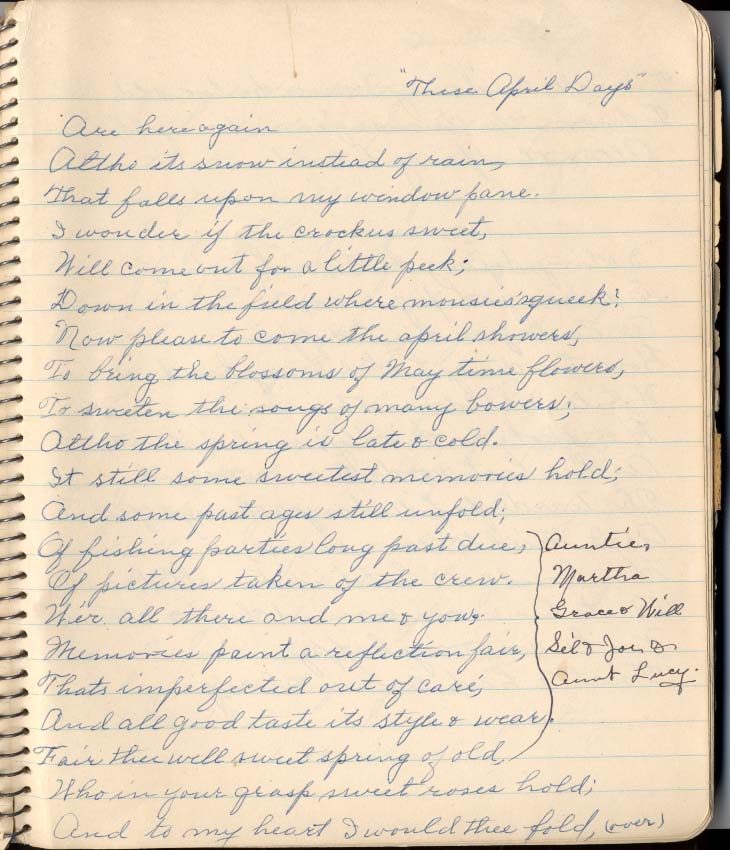 "These April Days"
Are here again
Altho its snow instead of rain,
That falls upon my window pane.
I wonder if the crockus sweet,
Will come out for a little peek;
Down in the field where mousies squeek?
Now please to come the april showers,
To bring the blossoms of May time flowers,
To sweeten the songs of many bowers;
Altho the spring is late & cold.
It still some sweetest memories hold;
And some past ages still unfold;
Of fishing parties long past due, Auntie,
Of pictures taken of the crew. Martha
We'r all there and me & you; Grace & Will
Memories paint a reflection fair, Sil & Joe, &
Thats imperfected out of care, Aunt Lucy.
And all good taste its style & wear.
Fair thee well sweet spring of old,
Who in your grasp sweet roses hold;
And to my heart I would thee fold, (over)